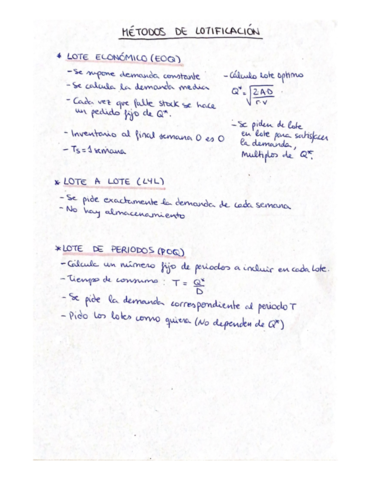 MÉTODOS DE LOTIFICACIÓN
* LOTE ECONÓMICO (EOQ)
- Se supone demanda constante
- Se calcula la demanda media
- Cada vez que falte stock se hace
un pedido fijo de Q*.
- Inventario al final semana 0 es 0
- Ts = 1 semana
- Cálculo Lote óptimo
Q* = √(2AD / rv)
- Se piden de lote
en lote para satisfacer
la demanda,
multiplos de Q*.
* LOTE A LOTE (L4L)
- Se pide exactamente la demanda de cada semana
- No hay almacenamiento
* LOTE DE PERIODOS (POQ)
- Calcula un número fijo de periodos a incluir en cada Lote.
- Tiempo de consumo: T = Q* / D
- Se pide la demanda correspondiente al periodo T
- Pido los lotes como quiera (No dependen de Q*)